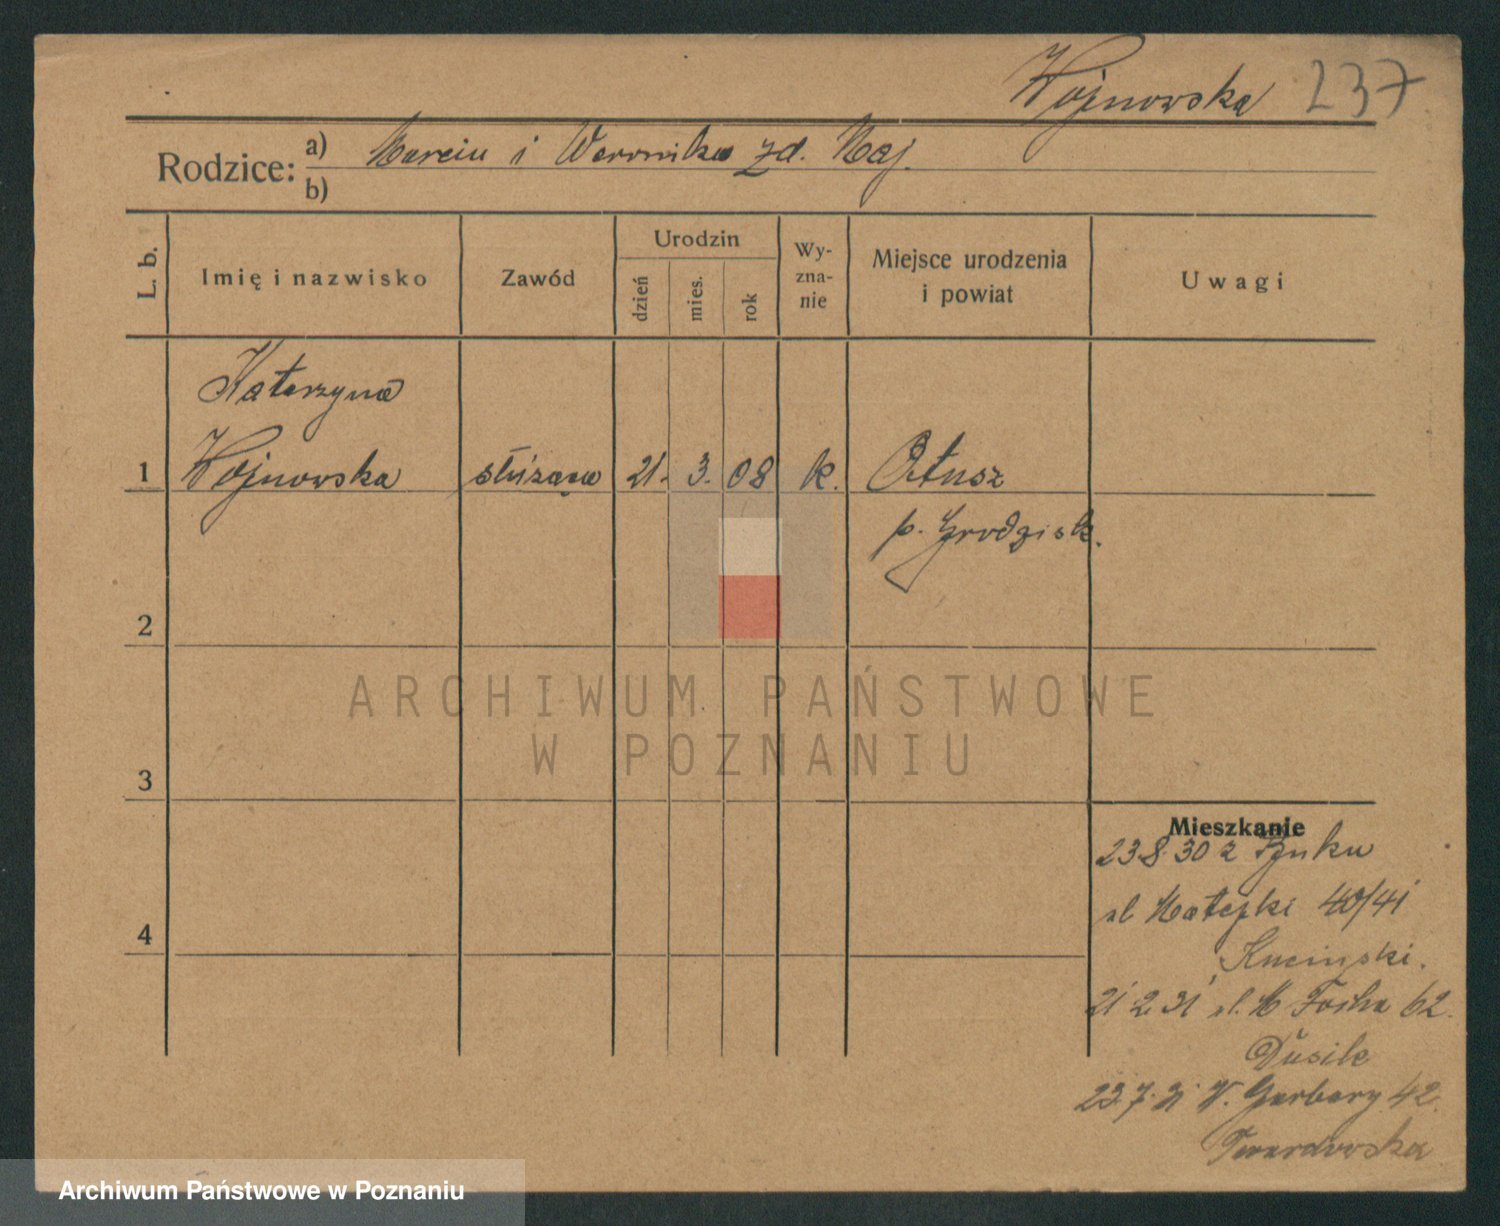 Wojnowska 237
Rodzice: a) Marcin i Weronika zd. Maj.
b)
L. b.
Imię i nazwisko
Zawód
Urodzin
dzień
mies.
rok
Wy-
zna-
nie
Miejsce urodzenia
i powiat
Uwagi
Katarzyna
1 Wojnowska służąca 21. 3. 08 k. Otusz
p. Grodzisk.
2
ARCHIWUM PAŃSTWOWE
W POZNANIU
3
Mieszkanie
23.8.30 z Buku
ul Matejki 40/41
4
Kucinski.
21 2 31 ul. M Focha 62.
Dusik
23.7.31 W. Garbary 42.
Twardowska
Archiwum Państwowe w Poznaniu